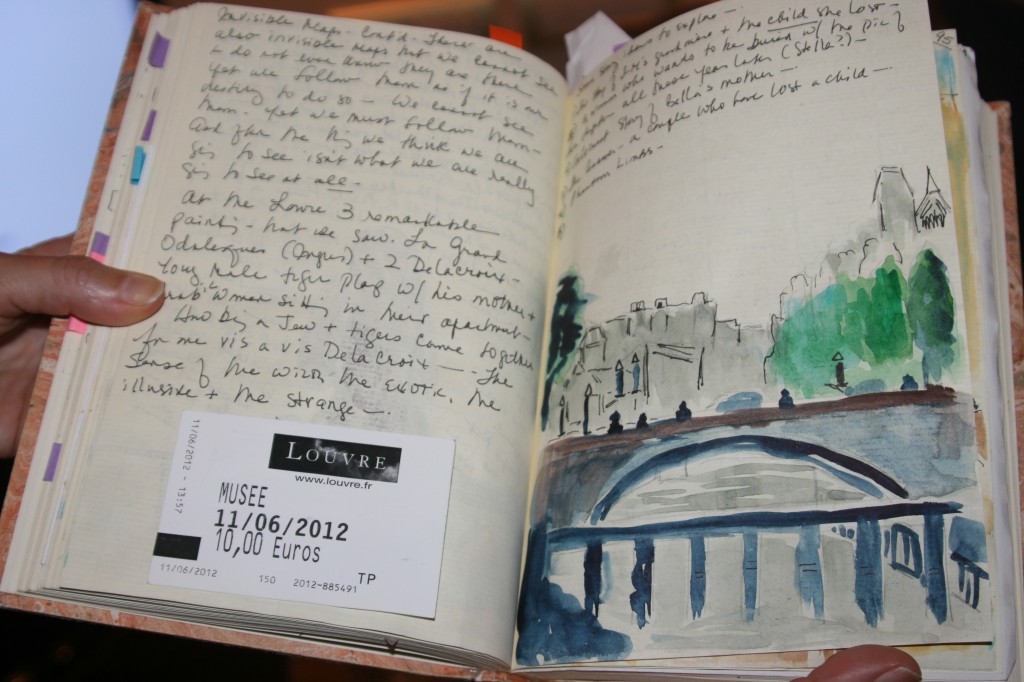 Invisible Maps - Cont'd - There are
also invisible maps that we cannot see
& do not even know they are there
Yet we follow them as if it is our
destiny to do so - We cannot see
them. Yet we must follow them -
And often the thing we think we are
going to see isn't what we are really
going to see at all -
At the Louvre 3 remarkable
paintings that we saw. La Grand
Odalesques (Ingres) + 2 Delacroix -
Young Male tiger Play w/ his mother +
Arab Women Sitting in their apartment -
And by a Jew + tigers come together
for me vis a vis DelaCroix — The
Sense of the within the exotic. The
illusive + the strange -
LOUVRE
www.louvre.fr
11/06/2012 - 13:57
MUSEE
11/06/2012
10,00 Euros
11/06/2012 150 2012-885491 TP
to explore -
grandmere + the child she lost -
who wants to be buried w/ the pic of
all those years later (Stella?) -
story of Bella's mother -
a couple who have lost a child -
Phantom Limbs -
95